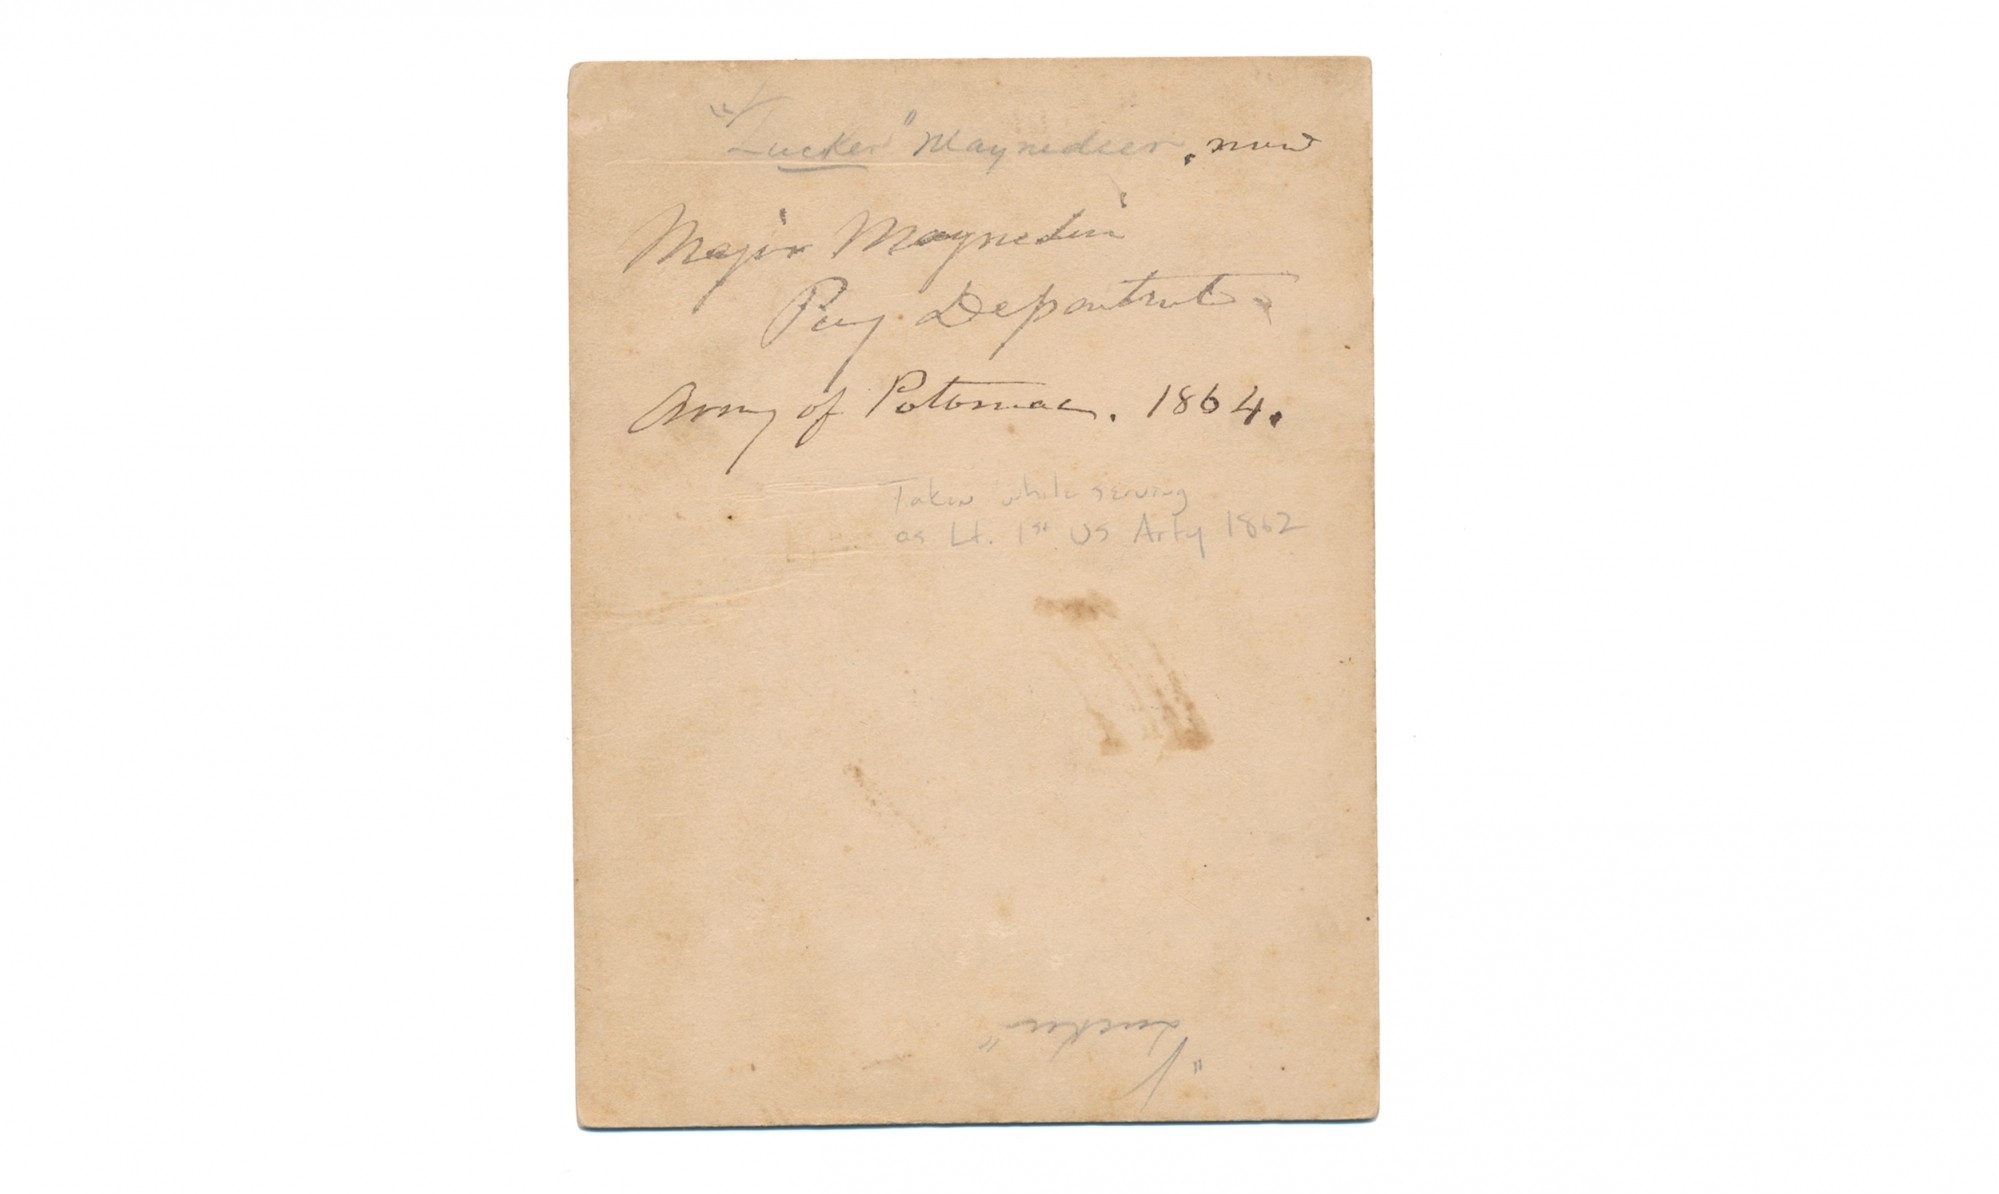 "Tucker" Maynedier, now
Major Maynedier
Pay Department.
Army of Potomac. 1864.
Taken while serving
as Lt. 1st US Arty 1862
"Tucker"